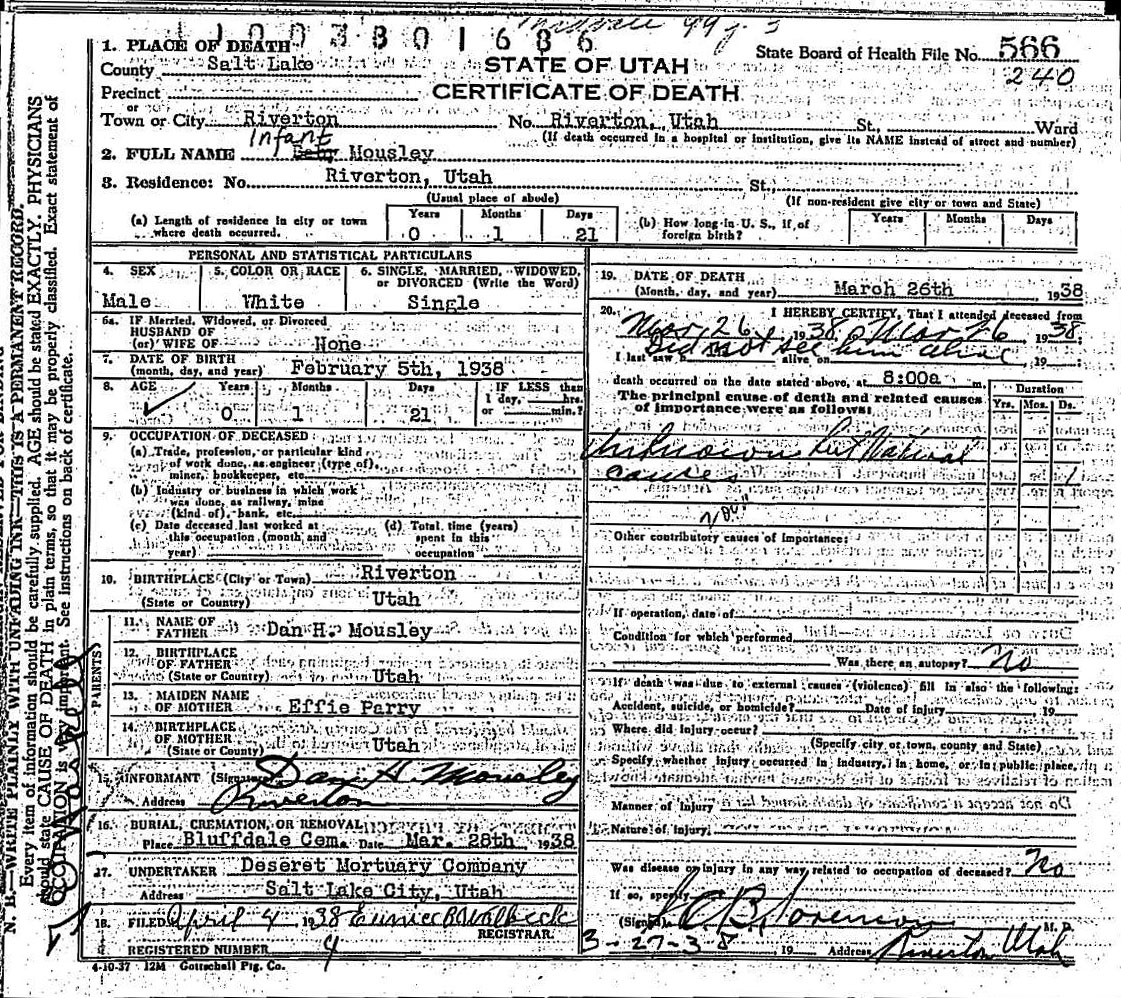 11003801686
1. PLACE OF DEATH
County Salt Lake
Precinct
or
Town or City Riverton
STATE OF UTAH
CERTIFICATE OF DEATH
State Board of Health File No. 566
240
No. Riverton, Utah St., Ward
(If death occurred in a hospital or institution, give its NAME instead of street and number)
Infant
2. FULL NAME Baby Mousley
3. Residence: No. Riverton, Utah St.,
(Usual place of abode)
(If non-resident give city or town and State)
(a) Length of residence in city or town where death occurred.
Years Months Days
0 1 21
(b) How long in U. S., if of foreign birth?
Years Months Days
PERSONAL AND STATISTICAL PARTICULARS
4. SEX 5. COLOR OR RACE 6. SINGLE, MARRIED, WIDOWED,
or DIVORCED (Write the Word)
Male White Single
6a. If Married, Widowed, or Divorced
HUSBAND OF
(or) WIFE OF None
7. DATE OF BIRTH
(month, day, and year) February 5th, 1938
8. AGE Years Months Days IF LESS than
1 day, hrs.
or min.?
0 1 21
9. OCCUPATION OF DECEASED
(a) Trade, profession, or particular kind
of work done, as engineer (type of),
miner, bookkeeper, etc.
(b) Industry or business in which work
was done, as railway, mine
(kind of), bank, etc.
(c) Date deceased last worked at
this occupation (month and
year)
(d) Total time (years)
spent in this
occupation
10. BIRTHPLACE (City or Town) Riverton
(State or Country) Utah
PARENTS
11. NAME OF
FATHER Dan H. Mousley
12. BIRTHPLACE
OF FATHER
(State or Country) Utah
13. MAIDEN NAME
OF MOTHER Effie Parry
14. BIRTHPLACE
OF MOTHER
(State or County) Utah
15. INFORMANT (Signature) Dan H. Mousley
Address Riverton
16. BURIAL, CREMATION, OR REMOVAL
Place Bluffdale Cem. Date Mar. 28th 1938
17. UNDERTAKER Deseret Mortuary Company
Address Salt Lake City, Utah
18. FILED April 4 1938 Eunice B Walbeck
REGISTRAR.
REGISTERED NUMBER 4
4-10-37 12M Gottschall Ptg. Co.
19. DATE OF DEATH
(Month, day, and year) March 26th 1938
20. I HEREBY CERTIFY, That I attended deceased from
Mar 26, 1938, to Mar 26, 1938;
Did not see him alive
I last saw h alive on , 19 ;
death occurred on the date stated above, at 8:00a m.
The principal cause of death and related causes
of importance were as follows:
Duration
Yrs. Mos. Ds.
Unknown but Natural
causes 1
Other contributory causes of importance:
If operation, date of
Condition for which performed
Was there an autopsy? No
If death was due to external causes (violence) fill in also the following:
Accident, suicide, or homicide? Date of injury 19
Where did injury occur?
(Specify city or town, county and State)
Specify whether injury occurred in industry, in home, or in public place.
Manner of injury
Nature of injury
Was disease or injury in any way related to occupation of deceased? No
If so, specify
(Signed) B. Sorenson M. D.
3-27-38 , 19 Address Riverton Utah
N. B.—WRITE PLAINLY WITH UNFADING INK—THIS IS A PERMANENT RECORD.
Every item of information should be carefully supplied. AGE should be stated EXACTLY. PHYSICIANS
should state CAUSE OF DEATH in plain terms, so that it may be properly classified. Exact statement of
OCCUPATION is very important. See instructions on back of certificate.